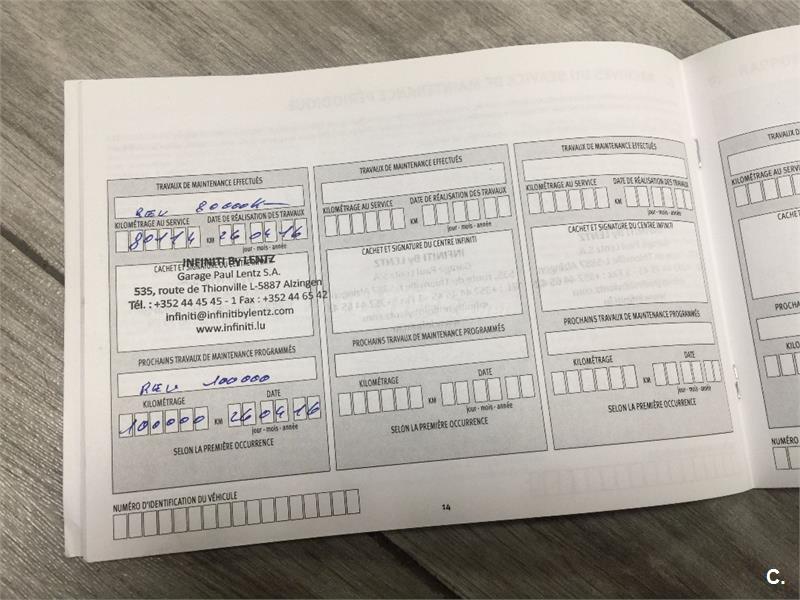 TRAVAUX DE MAINTENANCE EFFECTUÉS
REV 80000K
KILOMÉTRAGE AU SERVICE DATE DE RÉALISATION DES TRAVAUX
80114 KM 26 04 16
jour - mois - année
CACHET ET SIGNATURE DU CENTRE INFINITI
INFINITI By LENTZ
Garage Paul Lentz S.A.
535, route de Thionville L-5887 Alzingen
Tél. : +352 44 45 45 - 1 Fax : +352 44 65 42
infiniti@infinitibylentz.com
www.infiniti.lu
PROCHAINS TRAVAUX DE MAINTENANCE PROGRAMMÉS
REV 100000
KILOMÉTRAGE DATE
100000 KM 26 04 16
jour - mois - année
SELON LA PREMIÈRE OCCURRENCE
TRAVAUX DE MAINTENANCE EFFECTUÉS
KILOMÉTRAGE AU SERVICE DATE DE RÉALISATION DES TRAVAUX
KM
jour - mois - année
CACHET ET SIGNATURE DU CENTRE INFINITI
PROCHAINS TRAVAUX DE MAINTENANCE PROGRAMMÉS
KILOMÉTRAGE DATE
KM
jour - mois - année
SELON LA PREMIÈRE OCCURRENCE
TRAVAUX DE MAINTENANCE EFFECTUÉS
KILOMÉTRAGE AU SERVICE DATE DE RÉALISATION DES TRAVAUX
KM
jour - mois - année
CACHET ET SIGNATURE DU CENTRE INFINITI
PROCHAINS TRAVAUX DE MAINTENANCE PROGRAMMÉS
KILOMÉTRAGE DATE
KM
jour - mois - année
SELON LA PREMIÈRE OCCURRENCE
NUMÉRO D'IDENTIFICATION DU VÉHICULE
14
TRAVAUX D
KILOMÉTRAGE AU
CACHET
PROCHAINS
KILOM
SE
NUMÉRO
C.